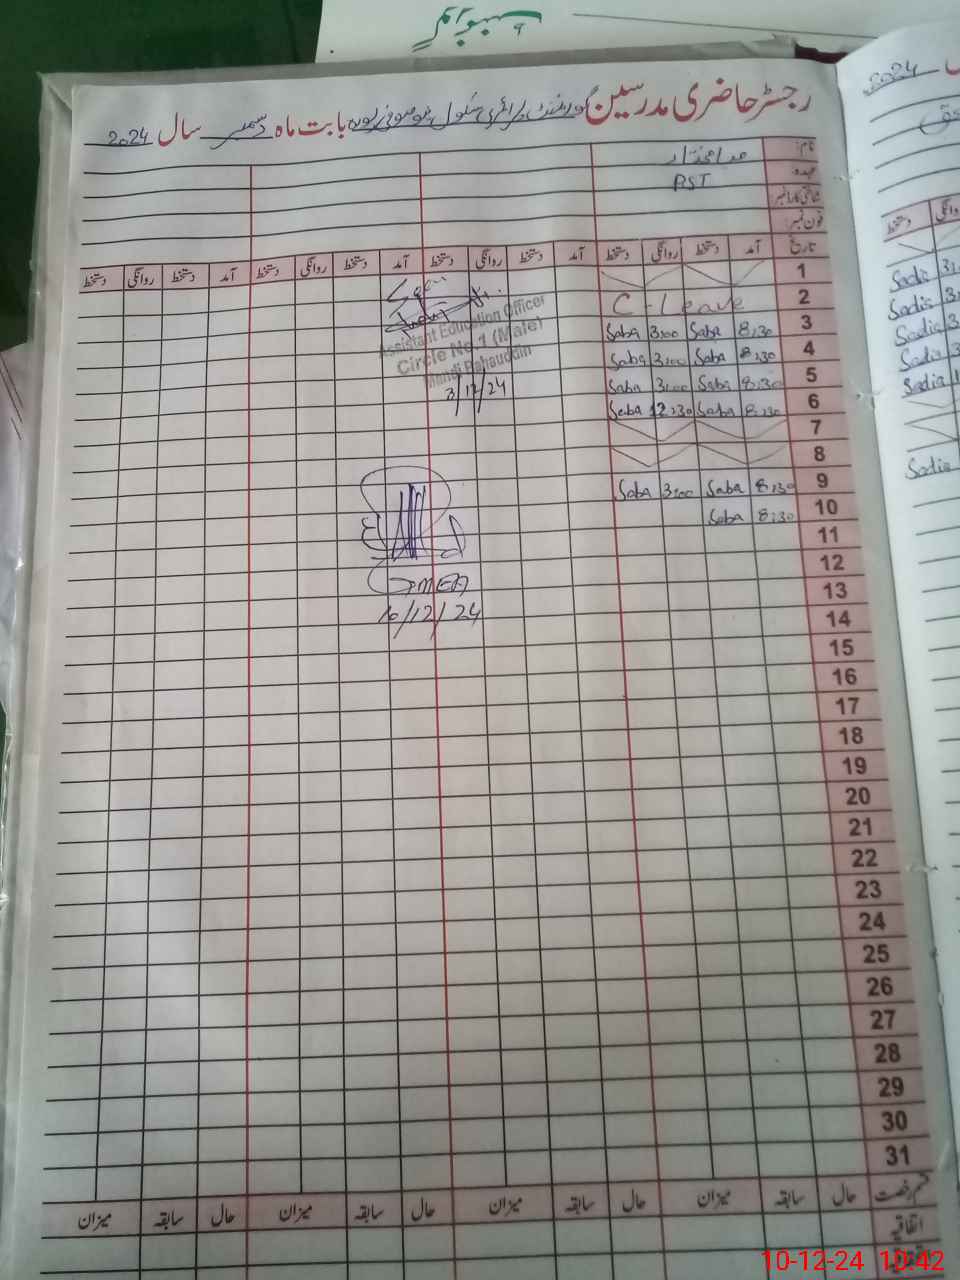 رجسٹر حاضری مدرسین گورنمنٹ پرائمری سکول بابت ماہ دسمبر سال 2024
نام:
عہدہ: PST
شناختی کارڈ نمبر:
فون نمبر:
تاریخ آمد دستخط روانگی دستخط آمد دستخط روانگی دستخط آمد دستخط روانگی دستخط آمد دستخط روانگی دستخط
1
2 C-Leave
3 8:30 Saba 3:00 Saba
4 8:30 Saba 3:00 Saba
5 8:30 Saba 3:00 Saba
6 8:30 Saba 12:30 Saba
7
8
9 8:30 Saba 3:00 Saba
10 8:30 Saba
11
12
13
14
15
16
17
18
19
20
21
22
23
24
25
26
27
28
29
30
31
Assistant Education Officer
Circle No.1 (Male)
Mandi Bahauddin
3/12/24
MEA
/12/24
قسم رخصت حال سابقہ میزان حال سابقہ میزان حال سابقہ میزان حال سابقہ میزان
اتفاقیہ
2024
Sadia
Sadia
Sadia
Sadia
Sadia
Sadia
10-12-24 10:42